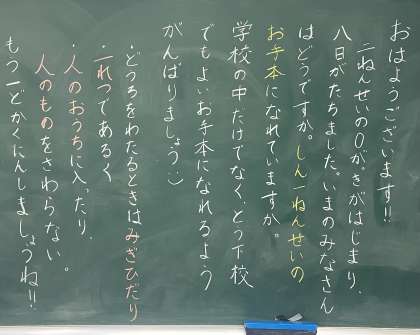 おはようございます!!
二ねんせいの〇がきがはじまり、
八日がたちました。いまのみなさん
はどうですか。しん一ねんせいの
お手本になれていますか。
学校の中だけでなく、とう下校
でもよいお手本になれるよう
がんばりましょう:)
・どうろをわたるときはみぎひだり
・二れつであるく
・人のおうちに入ったり、
人のものをさわらない。
もう一どかくにんしましょうね!!